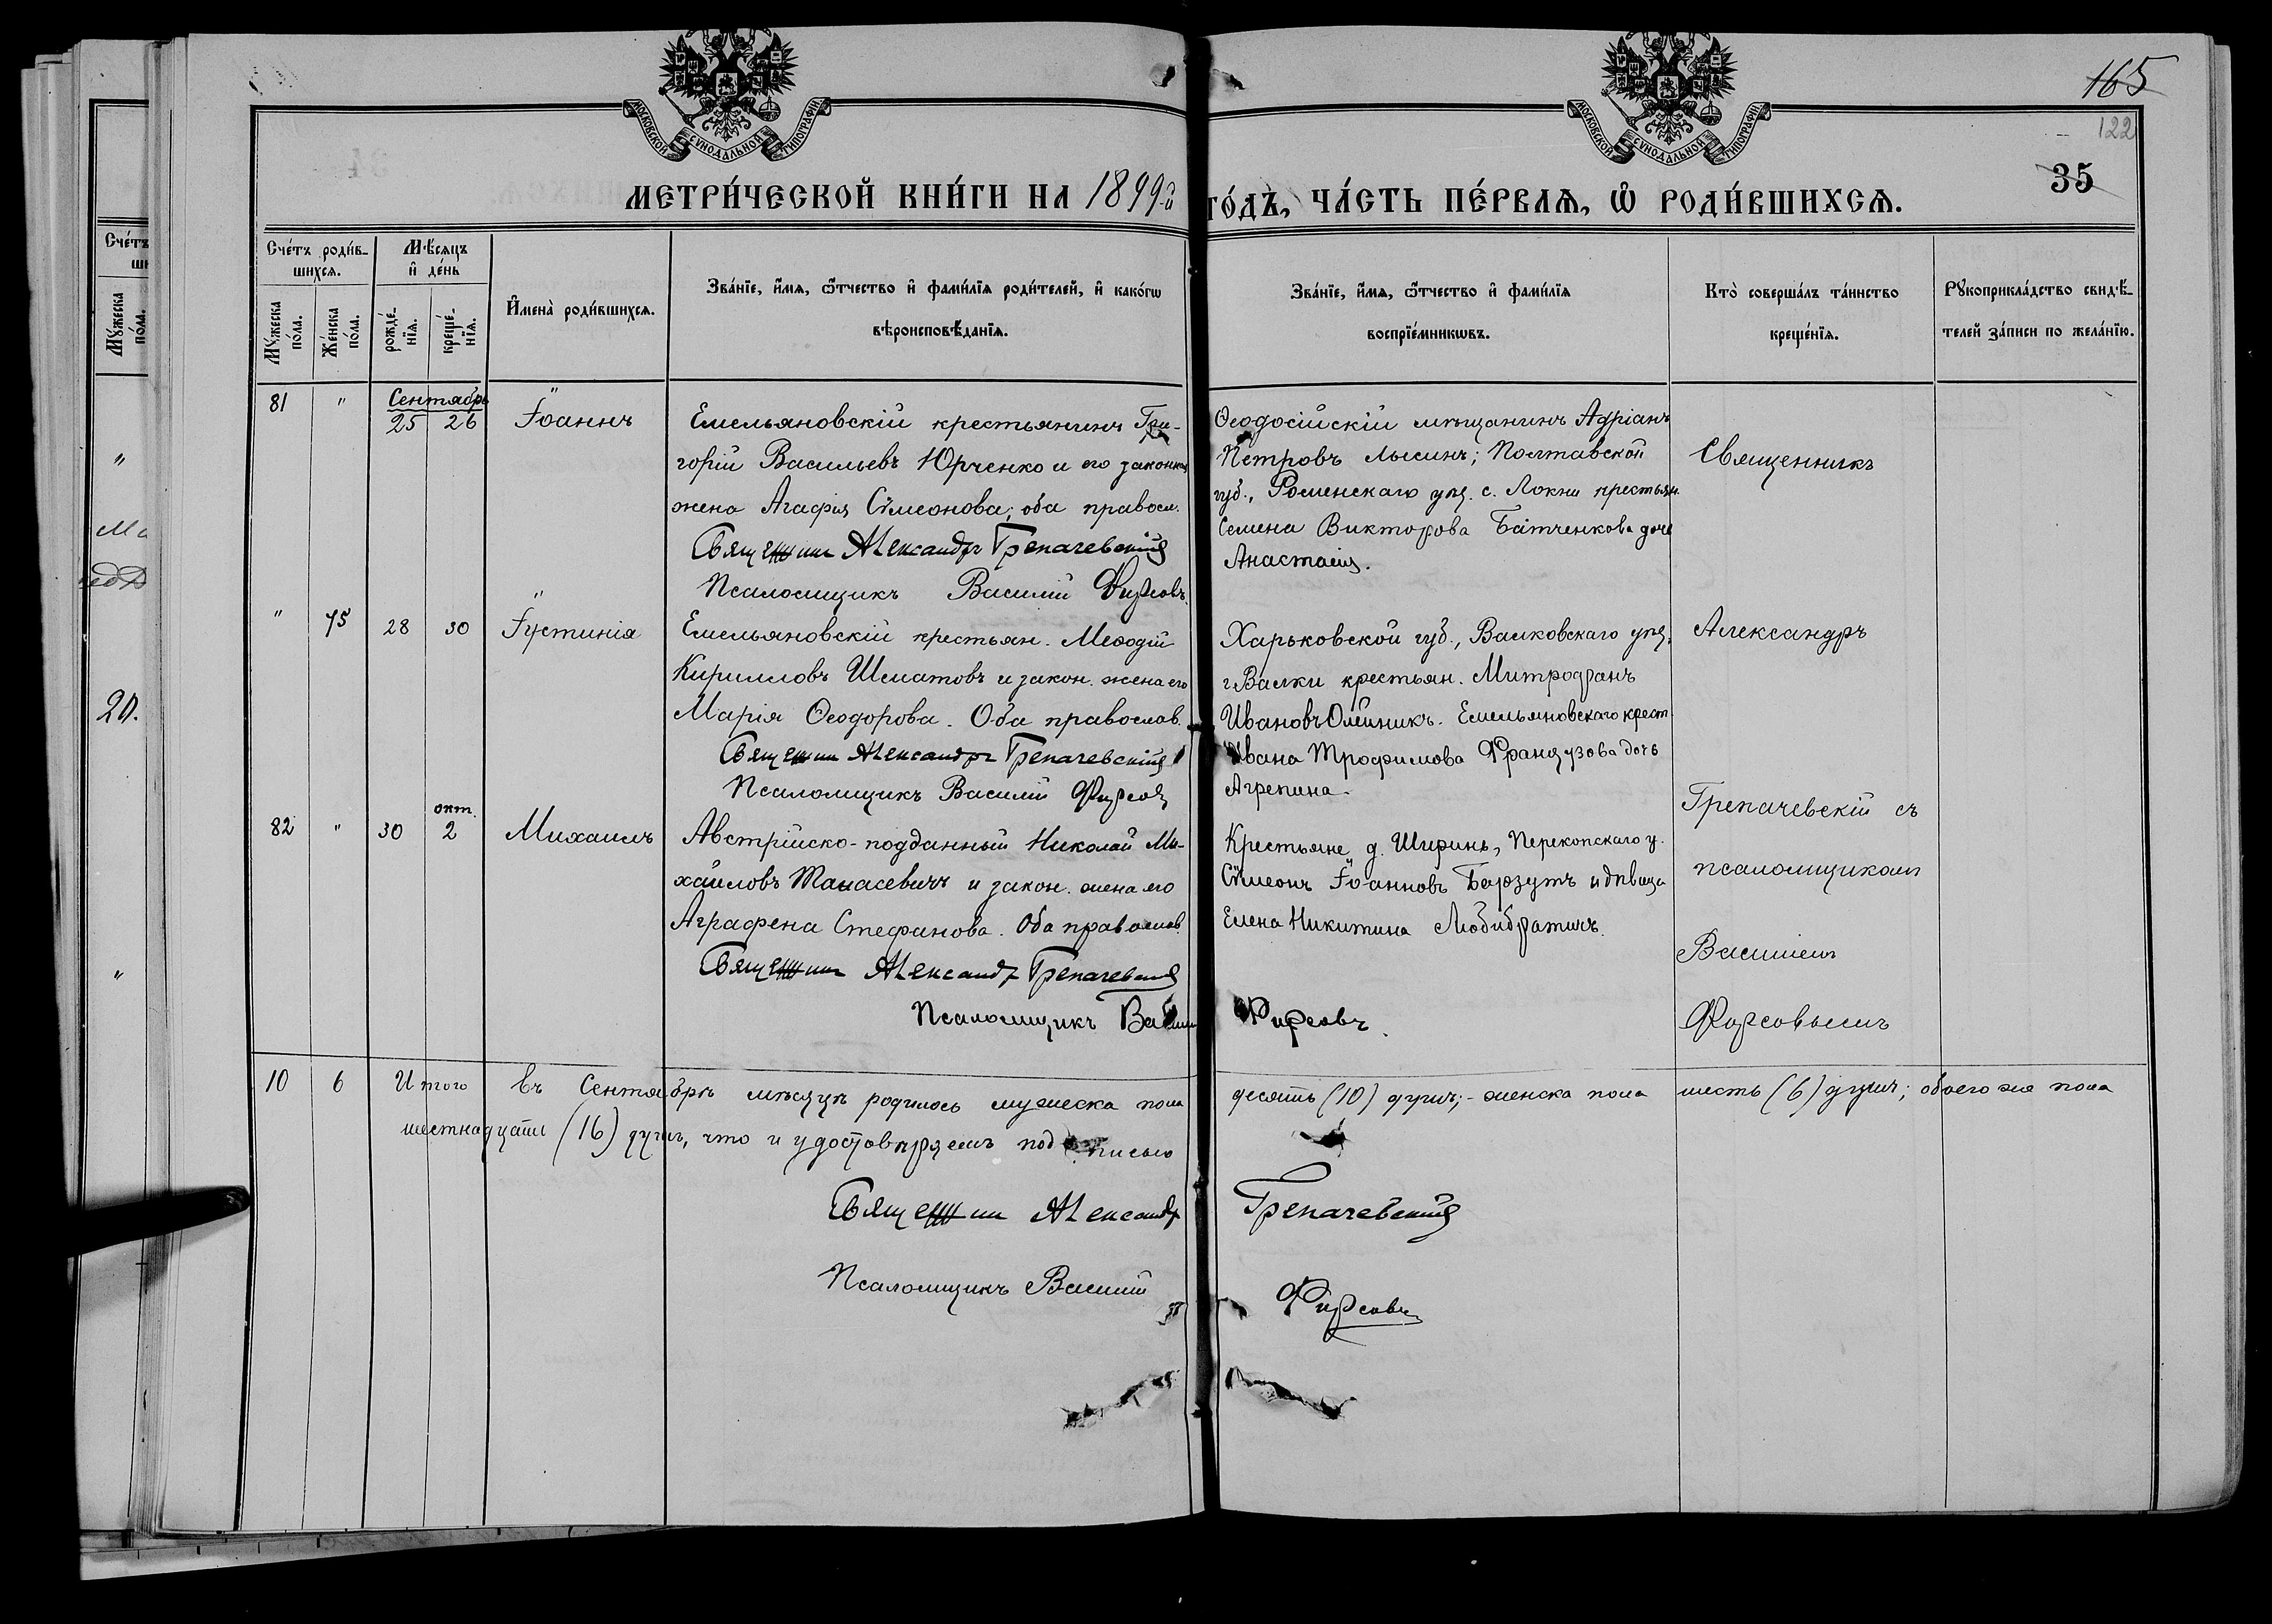 МОСКОВСКОЙ СУНОДАЛЬНОЙ ТИПОГРАФІИ
МОСКОВСКОЙ СУНОДАЛЬНОЙ ТИПОГРАФІИ
165
122
35
МЕТРИ́ЧЕСКОЙ КНИ́ГИ НА 1899-й
ГО́ДЪ, ЧА́СТЬ ПЕ́РВАЯ, Ѡ РОДИ́ВШИХСЯ.
Сче́тъ роди́в-
шихся.
Му́жеска
по́ла.
Же́нска
по́ла.
Мѣ́сяцъ
и де́нь
рожде́-
нїя.
креще́-
нїя.
Имена̀ роди́вшихся.
Зва́нїе, и́мя, ѻ́тчество и фами́лїя роди́телей, и како́гѡ
вѣроисповѣ́данїя.
Зва́нїе, и́мя, ѻ́тчество и фами́лїя
воспрїе́мникѡвъ.
Кто̀ соверша́лъ та́инство
креще́нїя.
Рꙋкоприкла́дство свидѣ́-
телей за́писи по жела́нїю.
81 " Сентябрь
25 26 Іоаннъ
Емельяновскій крестьянинъ Гри-
горій Васильевъ Юрченко и его законная
жена Агафія Сѵмеонова; оба правосл.
Священник Александр Грепачевскій
Псаломщикъ Василій Фирсовъ.
Ѳеодосійскій мѣщанинъ Адріанъ
Петровъ Лысинъ; Полтавской
губ., Роменскаго уѣз. с. Локни крестьян.
Семена Викторова Батченкова дочь
Анастасія.
Священникъ
" 75 28 30 Іустинія
Емельяновскій крестьян. Меѳодій
Кирилловъ Шматовъ и закон. жена его
Марія Ѳеодорова. Оба православ.
Священник Александр Грепачевскій
Псаломщикъ Василій Фирсовъ
Харьковской губ., Валковскаго уѣз.
г. Валки крестьян. Митрофанъ
Ивановъ Олейникъ. Емельяновскаго крест.
Ивана Трофимова Французова дочь
Агрепина.
Александръ
82 " 30 окт. 2 Михаилъ
Австрійско-подданный Николай Ми-
хайловъ Танасевичъ и закон. жена его
Аграфена Стефанова. Оба православ.
Священник Александр Грепачевскій
Псаломщикъ Васил Фирсовъ.
Крестьяне д. Ширинь, Перекопскаго у.
Сѵмеонъ Іоанновъ Барзутъ и дѣвица
Елена Никитина Любибратичъ.
Грепачевскій съ
псаломщикомъ
Василіемъ
Фирсовымъ
10 6 Итого въ Сентябрѣ мѣсяцѣ родилось мужеска пола десять (10) душъ; - женска пола шесть (6) душъ; обоего же пола
шестнадцать (16) душъ, что и удостовѣряемъ подписью
Священник Александр Грепачевскій
Псаломщикъ Василій Фирсовъ